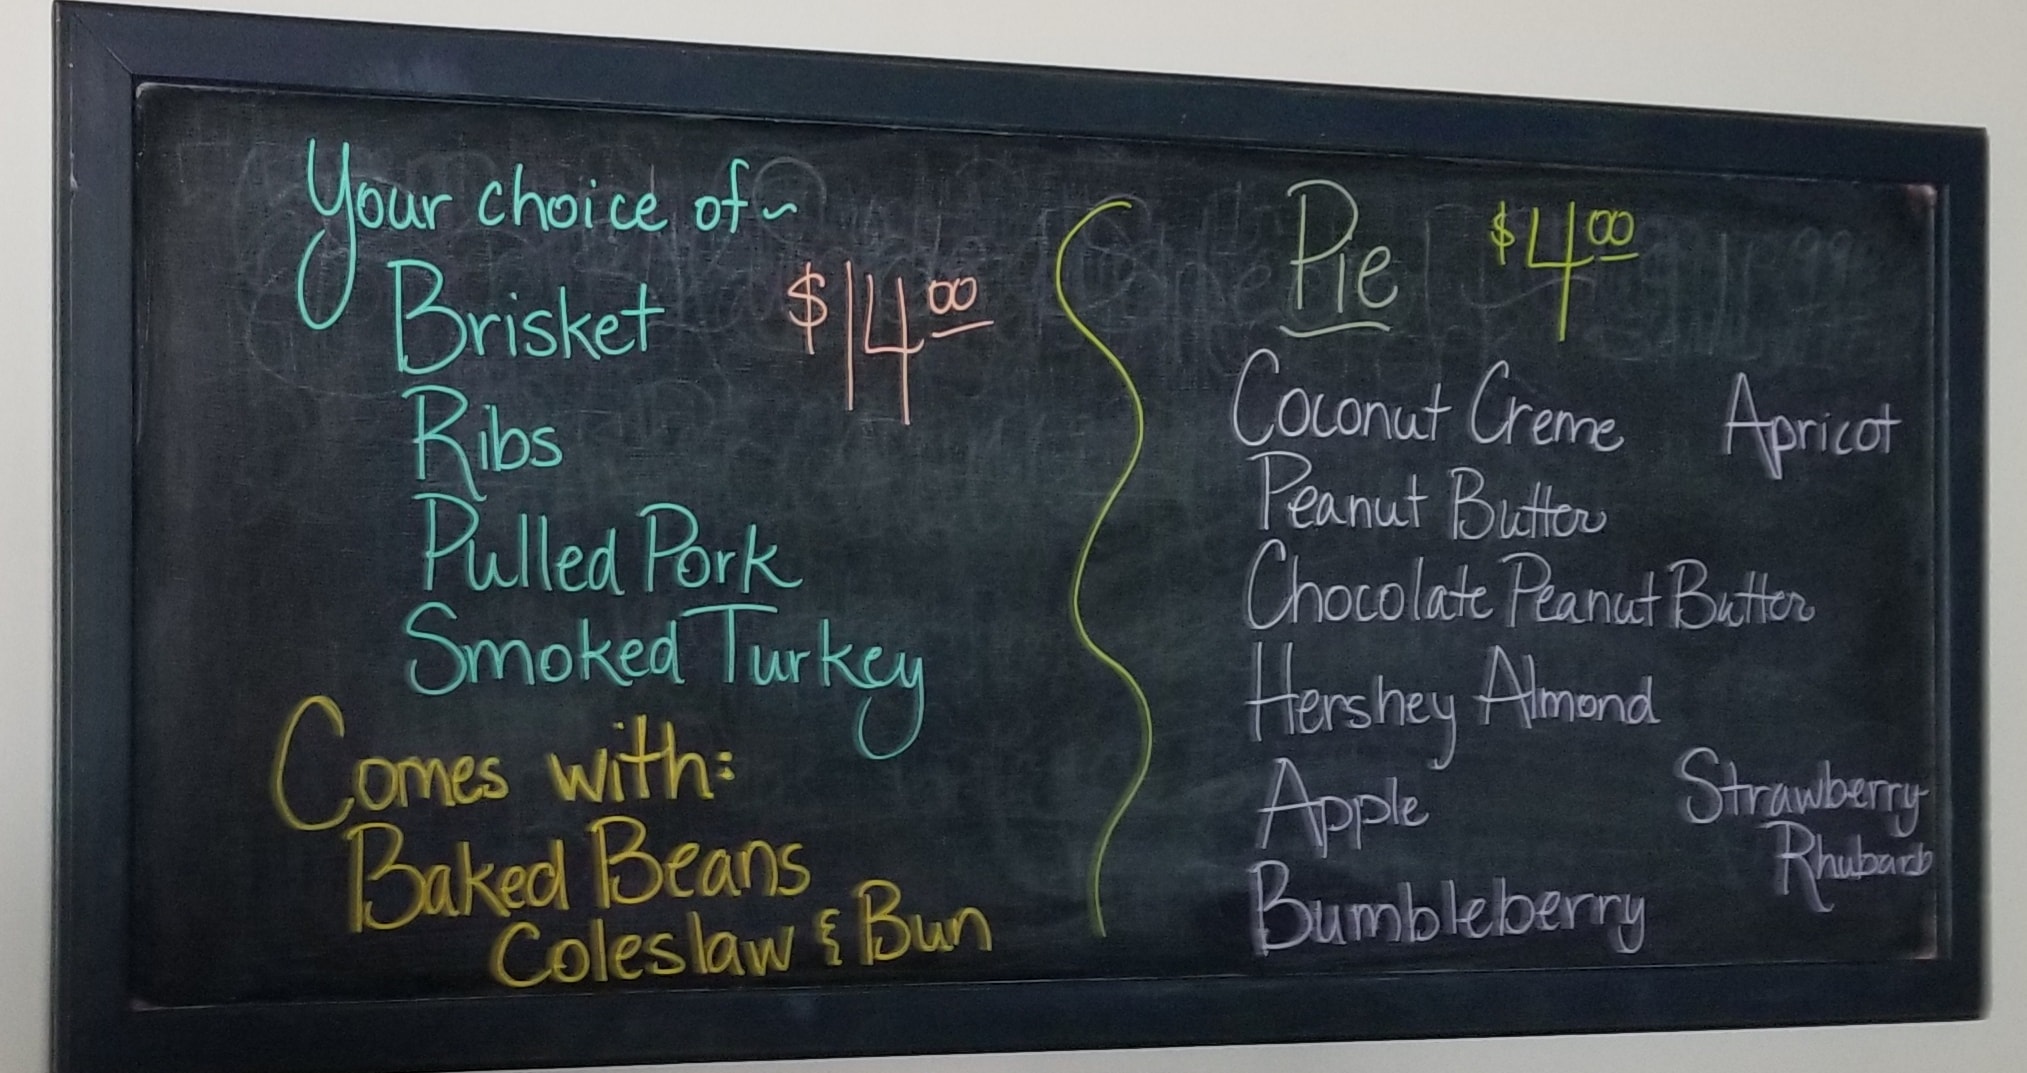 Your choice of~
Brisket $14.00
Ribs
Pulled Pork
Smoked Turkey
Comes with:
Baked Beans
Coleslaw & Bun
Pie $4.00
Coconut Creme Apricot
Peanut Butter
Chocolate Peanut Butter
Hershey Almond
Apple Strawberry
Rhubarb
Bumbleberry